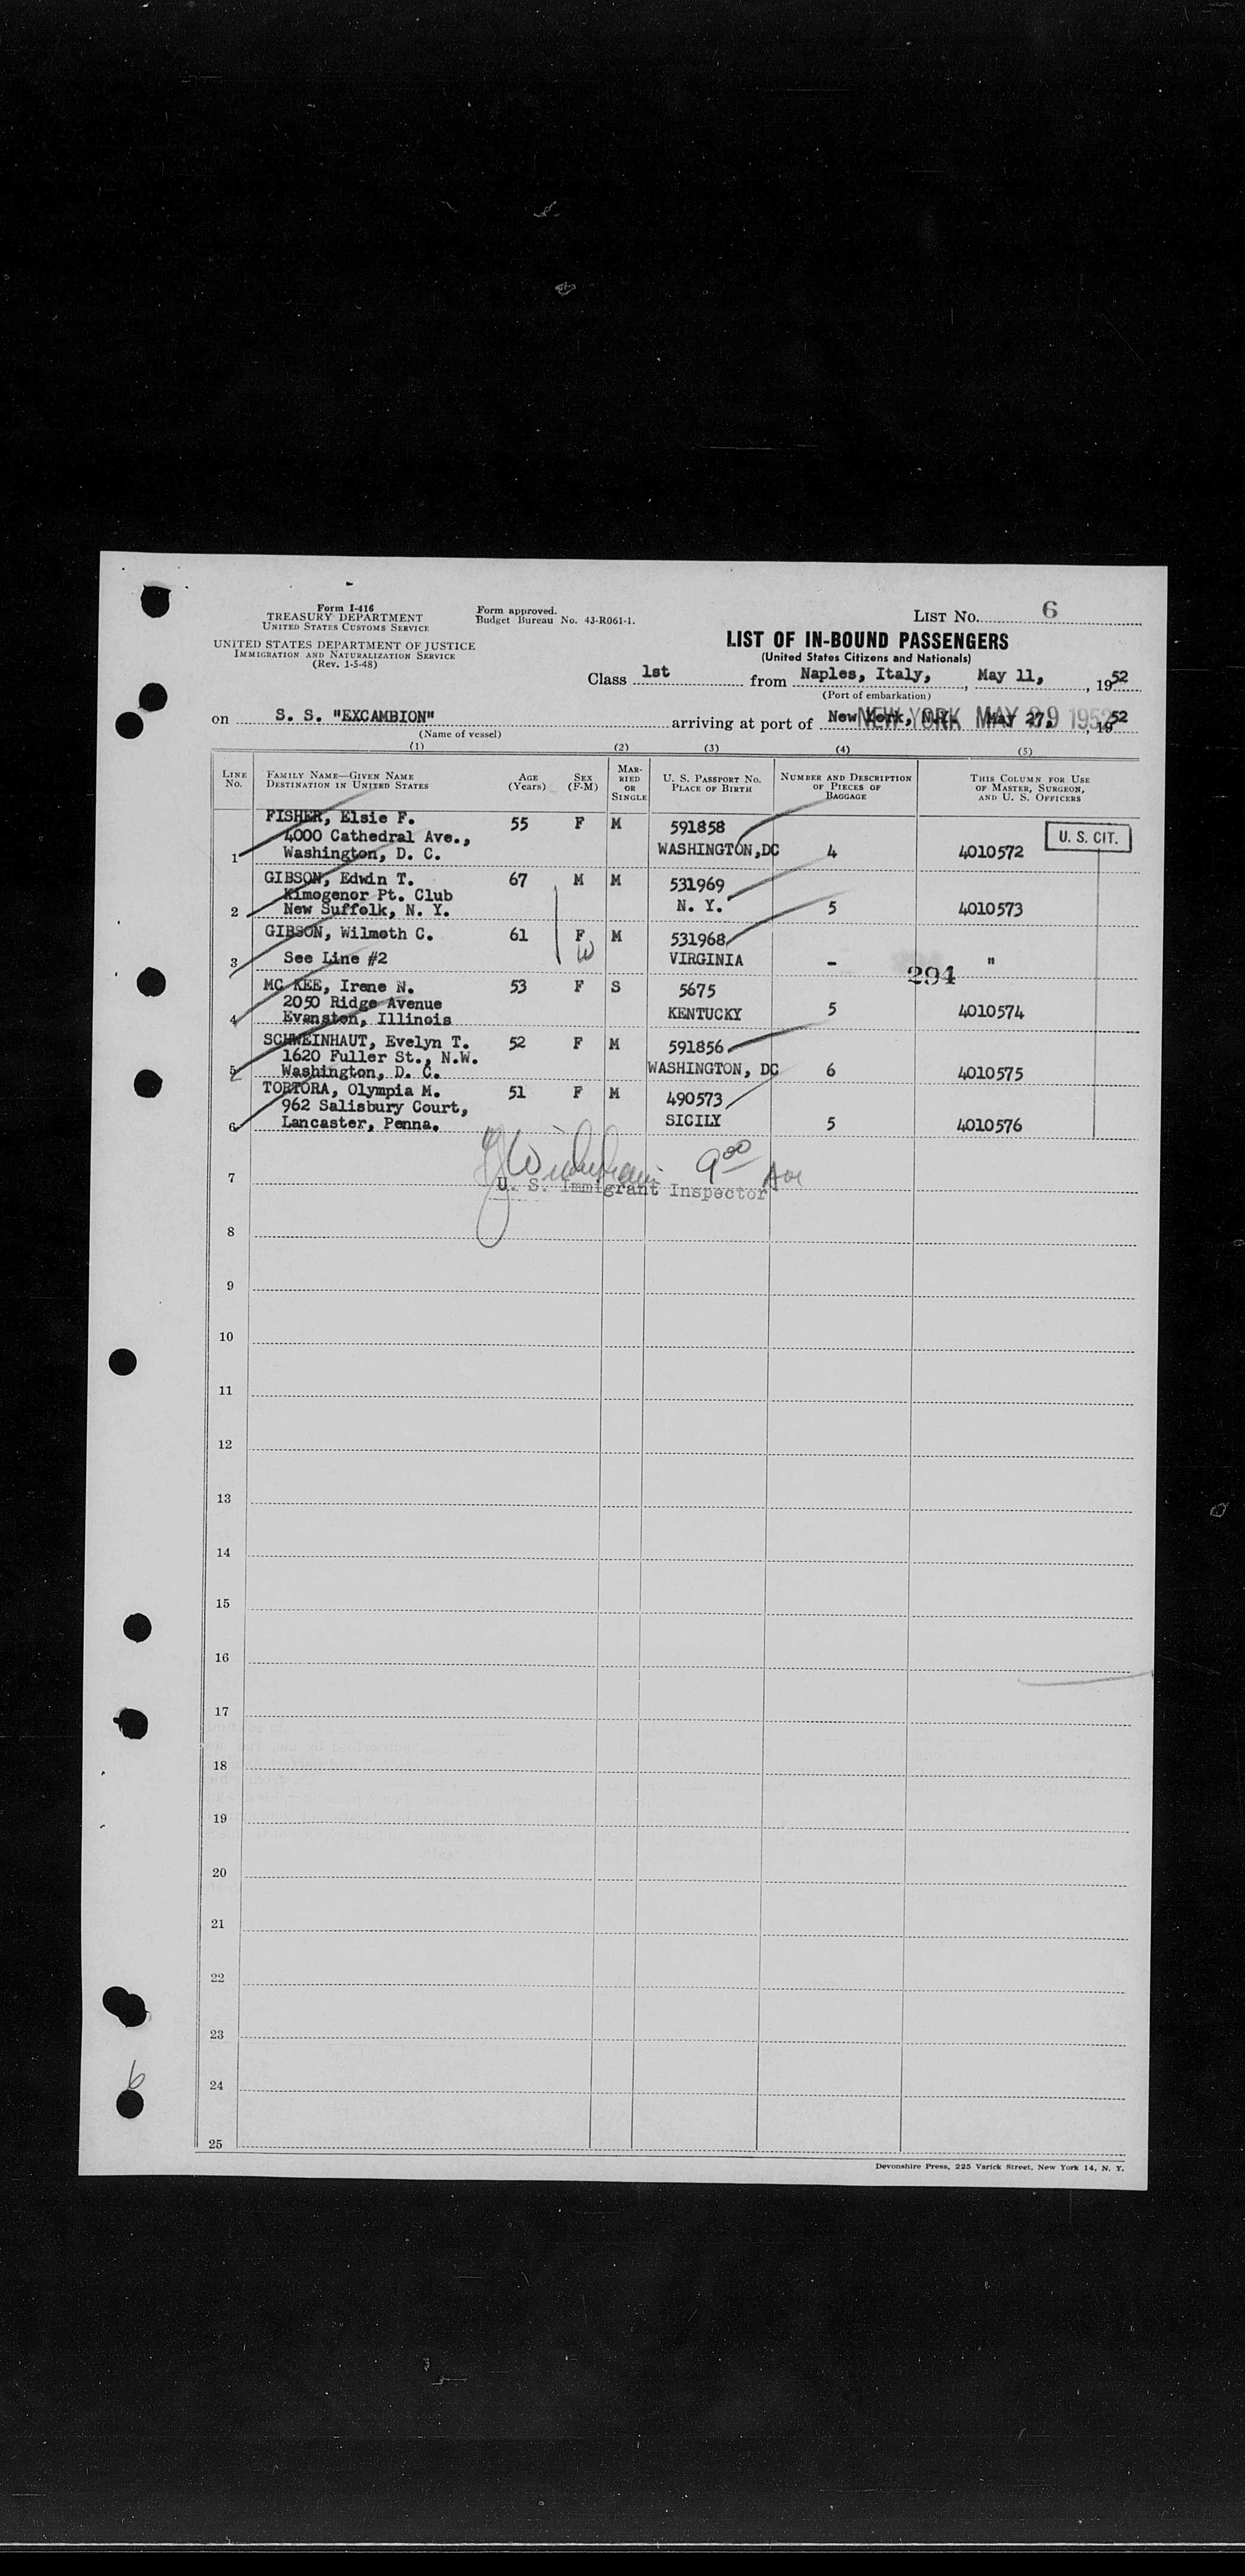 Form I-416
TREASURY DEPARTMENT
UNITED STATES CUSTOMS SERVICE
UNITED STATES DEPARTMENT OF JUSTICE
IMMIGRATION AND NATURALIZATION SERVICE
(Rev. 1-5-48)
Form approved.
Budget Bureau No. 43-R061-1.
LIST NO. 6
LIST OF IN-BOUND PASSENGERS
(United States Citizens and Nationals)
Class 1st from Naples, Italy, , May 11, , 1952
(Port of embarkation)
on S. S. "EXCAMBION" arriving at port of New York, N.Y. May 27, , 1952
NEW YORK MAY 29 1952
(Name of vessel)
(1) (2) (3) (4) (5)
LINE NO.
FAMILY NAME—GIVEN NAME
DESTINATION IN UNITED STATES
AGE
(YEARS)
SEX
(F-M)
MARRIED
OR
SINGLE
U. S. PASSPORT NO.
PLACE OF BIRTH
NUMBER AND DESCRIPTION
OF PIECES OF
BAGGAGE
THIS COLUMN FOR USE
OF MASTER, SURGEON,
AND U. S. OFFICERS
FISHER, Elsie F. 55 F M 591858
4000 Cathedral Ave., U. S. CIT.
1 Washington, D. C. WASHINGTON,DC 4 4010572
GIBSON, Edwin T. 67 M M 531969
Kimogenor Pt. Club
2 New Suffolk, N. Y. N. Y. 5 4010573
GIBSON, Wilmoth C. 61 F M 531968
W
3 See Line #2 VIRGINIA - "
294
MC KEE, Irene N. 53 F S 5675
2050 Ridge Avenue
4 Evanston, Illinois KENTUCKY 5 4010574
SCHWEINHAUT, Evelyn T. 52 F M 591856
1620 Fuller St., N.W.
5 Washington, D. C. WASHINGTON, DC 6 4010575
TORTORA, Olympia M. 51 F M 490573
962 Salisbury Court,
6 Lancaster, Penna. SICILY 5 4010576
9 00
7 U. S. Immigrant Inspector
8
9
10
11
12
13
14
15
16
17
18
19
20
21
22
23
24
25
6
Devonshire Press, 225 Varick Street, New York 14, N. Y.